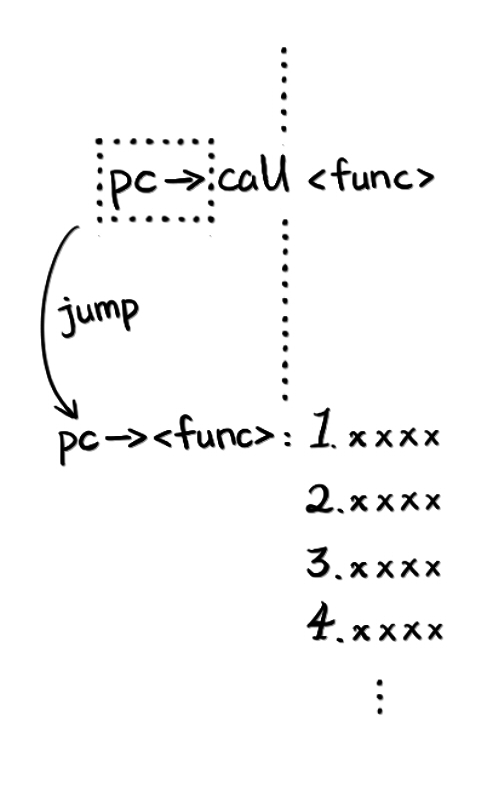 pc→call <func>
jump
pc→<func>: 1. x x x x
2. x x x x
3. x x x x
4. x x x x